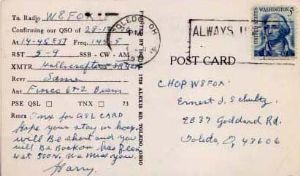 To Radio W8FOX
Confirming our QSO of
At 14-45 EST Freq.
RST 5-9 SSB - CW - AM
XMTR Hallicrafters
Recvr Same
Ant
PSE QSL TNX 73
Rmx Tnx for QSL CARD
Hope your stay in hosp.
will Be short and you
will Be Back on
soon. We miss you.
Harry
TOLEDO, OH
PM
ALWAYS U
WASHINGTON
5¢
POST CARD
W8FOX
Ernest J. Schultz
2837 Goddard Rd.
Toledo, O, 43606